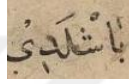 بَاشْلَدِيْ